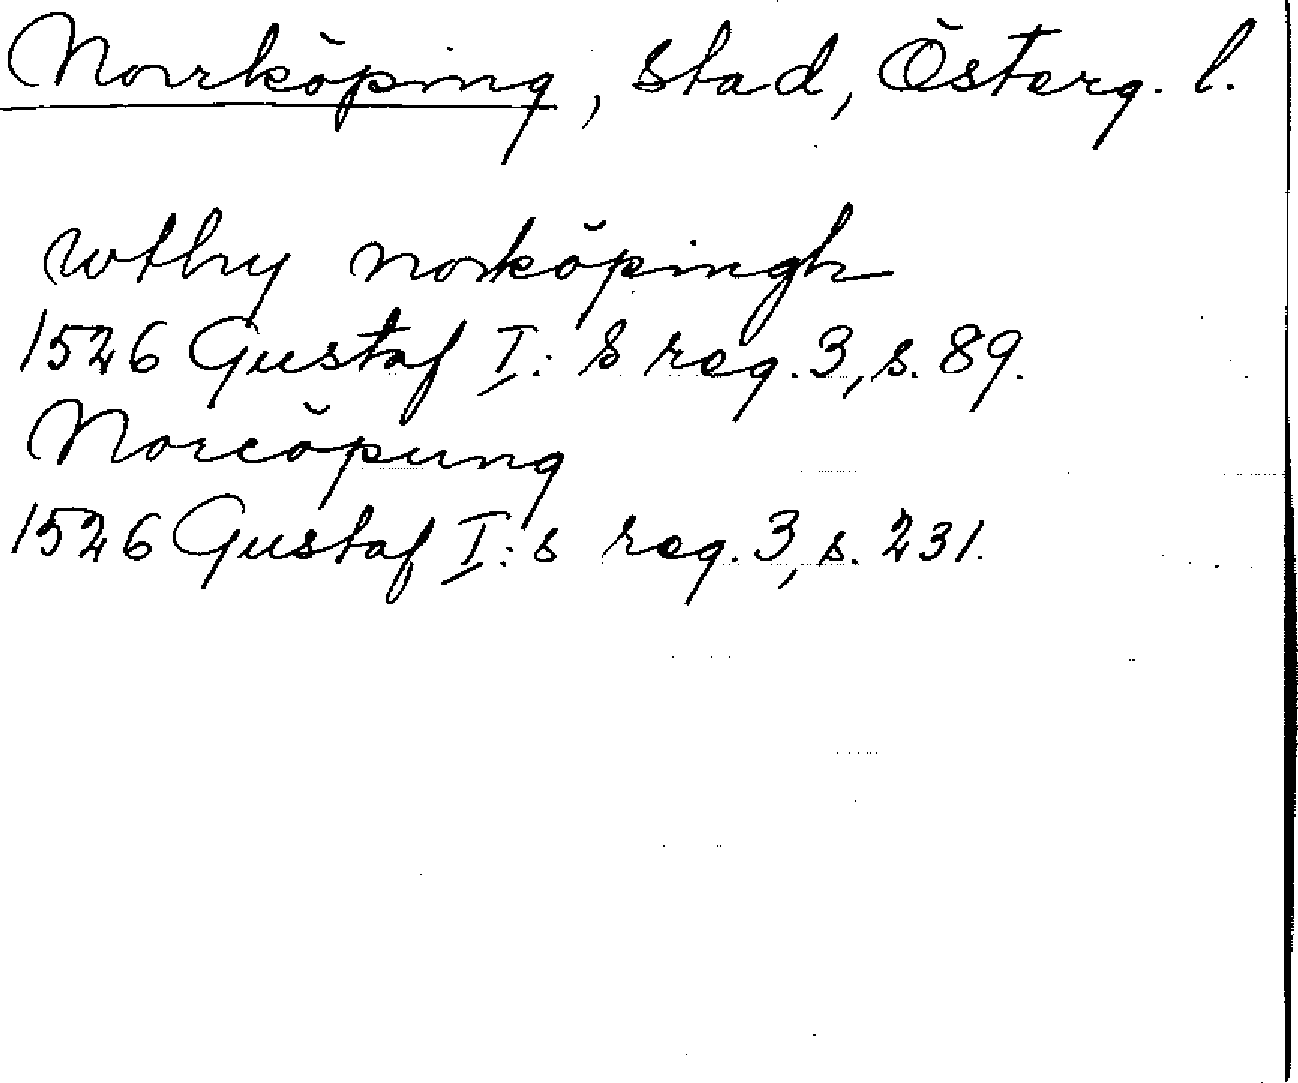 Norrköping, stad, Österg. l.
wthy norköpingh
1526 Gustaf I: s reg. 3, s. 89.
Norcöpung
1526 Gustaf I: s reg. 3, s. 231.